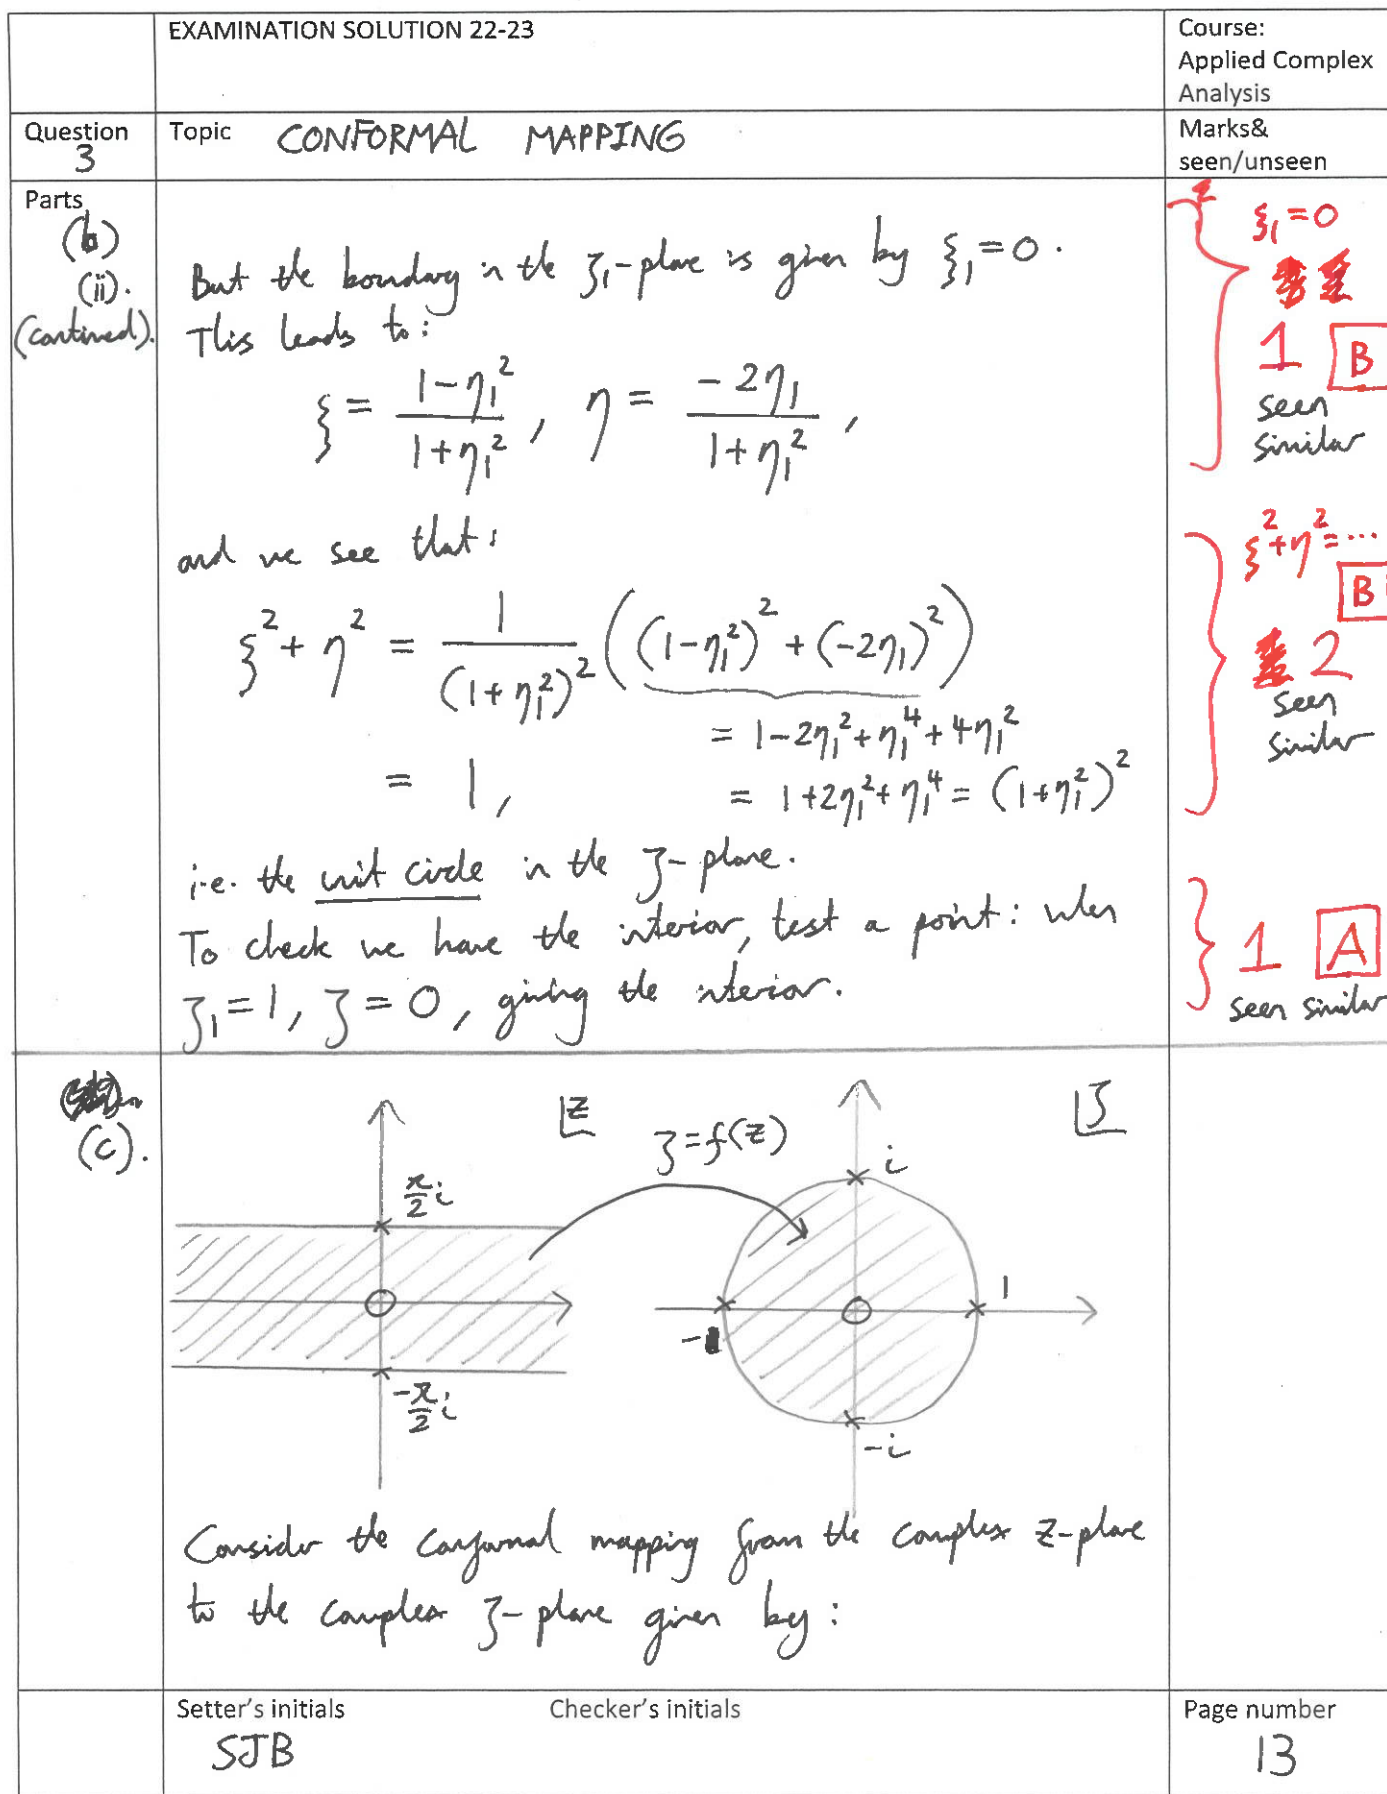 EXAMINATION SOLUTION 22-23
Course:
Applied Complex
Analysis
Question
3
Topic CONFORMAL MAPPING
Marks&
seen/unseen
Parts
(b)
(ii).
(continued).
But the boundary in the ζ₁-plane is given by ξ₁=0.
This leads to:
ξ = (1-η₁²)/(1+η₁²), η = (-2η₁)/(1+η₁²),
ξ₁=0
1 B
seen
similar
and we see that:
ξ² + η² = 1/(1+η₁²)² ((1-η₁²)² + (-2η₁)²)
= 1-2η₁²+η₁⁴+4η₁²
= 1, = 1+2η₁²+η₁⁴ = (1+η₁²)²
ξ²+η²=...
B
2
seen
similar
i.e. the unit circle in the ζ-plane.
To check we have the interior, test a point: when
ζ₁=1, ζ=0, giving the interior.
1 A
seen similar
(c).
z
ζ=f(z)
ζ
π/2 i
-π/2 i
i
1
-1
-i
Consider the conformal mapping from the complex z-plane
to the complex ζ-plane given by:
Setter's initials
SJB
Checker's initials
Page number
13